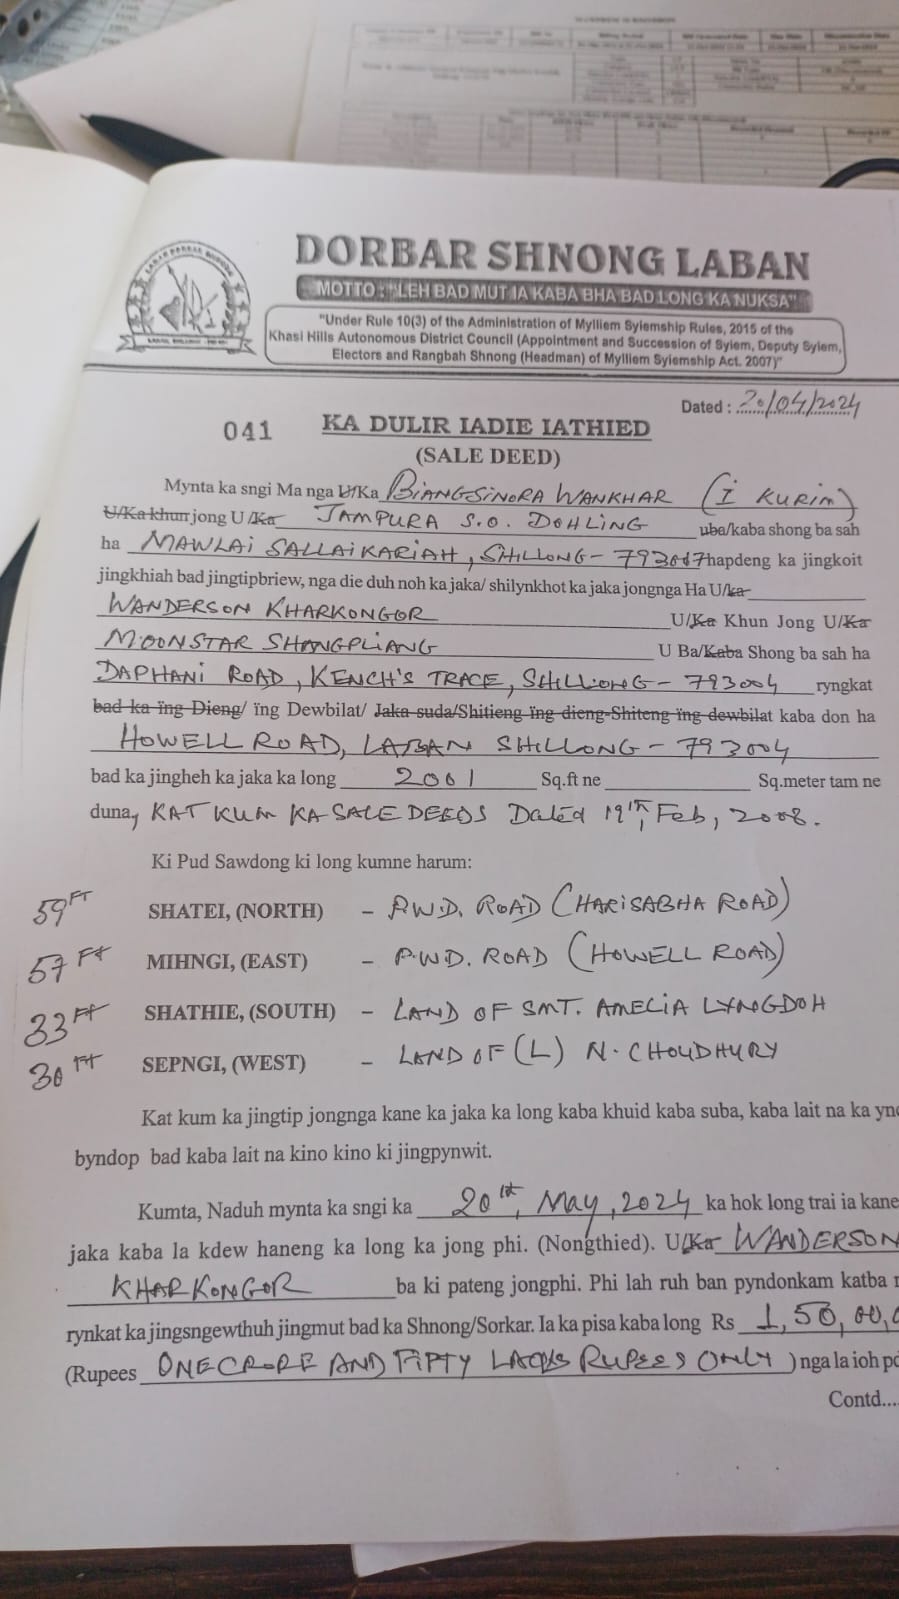 DORBAR SHNONG LABAN
MOTTO : "LEH BAD MUT IA KABA BHA BAD LONG KA NUKSA"
"Under Rule 10(3) of the Administration of Mylliem Syiemship Rules, 2015 of the
Khasi Hills Autonomous District Council (Appointment and Succession of Syiem, Deputy Syiem,
Electors and Rangbah Shnong (Headman) of Mylliem Syiemship Act. 2007)"
Dated : 20/04/2024
041 KA DULIR IADIE IATHIED
(SALE DEED)
Mynta ka sngi Ma nga U/Ka BIANGSINORA WANKHAR (I KURIM)
U/Ka khun jong U /Ka JAMPURA S.O. DOHLING uba/kaba shong ba sah
ha MAWLAI SALLAIKARIAH, SHILLONG - 793017 hapdeng ka jingkoit
jingkhiah bad jingtipbriew, nga die duh noh ka jaka/ shilynkhot ka jaka jongnga Ha U/ka
WANDERSON KHARKONGOR U/Ka Khun Jong U/Ka
MOONSTAR SHANGPLIANG U Ba/Kaba Shong ba sah ha
DAPHANI ROAD, KENCH'S TRACE, SHILLONG - 793004 ryngkat
bad ka ïng Dieng/ ïng Dewbilat/ Jaka suda/Shitieng ïng dieng-Shiteng ïng dewbilat kaba don ha
HOWELL ROAD, LABAN SHILLONG - 793004
bad ka jingheh ka jaka ka long 2001 Sq.ft ne Sq.meter tam ne
duna, KAT KUM KA SALE DEEDS Dated 19th, Feb, 2008.
Ki Pud Sawdong ki long kumne harum:
59 FT SHATEI, (NORTH) - P.W.D. ROAD (HARISABHA ROAD)
57 Ft MIHNGI, (EAST) - P.W.D. ROAD (HOWELL ROAD)
33 Ft SHATHIE, (SOUTH) - LAND OF SMT. AMELIA LYNGDOH
30 Ft SEPNGI, (WEST) - LAND OF (L) N. CHOUDHURY
Kat kum ka jingtip jongnga kane ka jaka ka long kaba khuid kaba suba, kaba lait na ka
byndop bad kaba lait na kino kino ki jingpynwit.
Kumta, Naduh mynta ka sngi ka 20th, May, 2024 ka hok long trai ia kane
jaka kaba la kdew haneng ka long ka jong phi. (Nongthied). U/Ka WANDERSON
KHARKONGOR ba ki pateng jongphi. Phi lah ruh ban pyndonkam katba
rynkat ka jingsngewthuh jingmut bad ka Shnong/Sorkar. Ia ka pisa kaba long Rs 1,50,00,
(Rupees ONE CRORE AND FIFTY LACKS RUPEES ONLY ) nga la ioh
Contd....